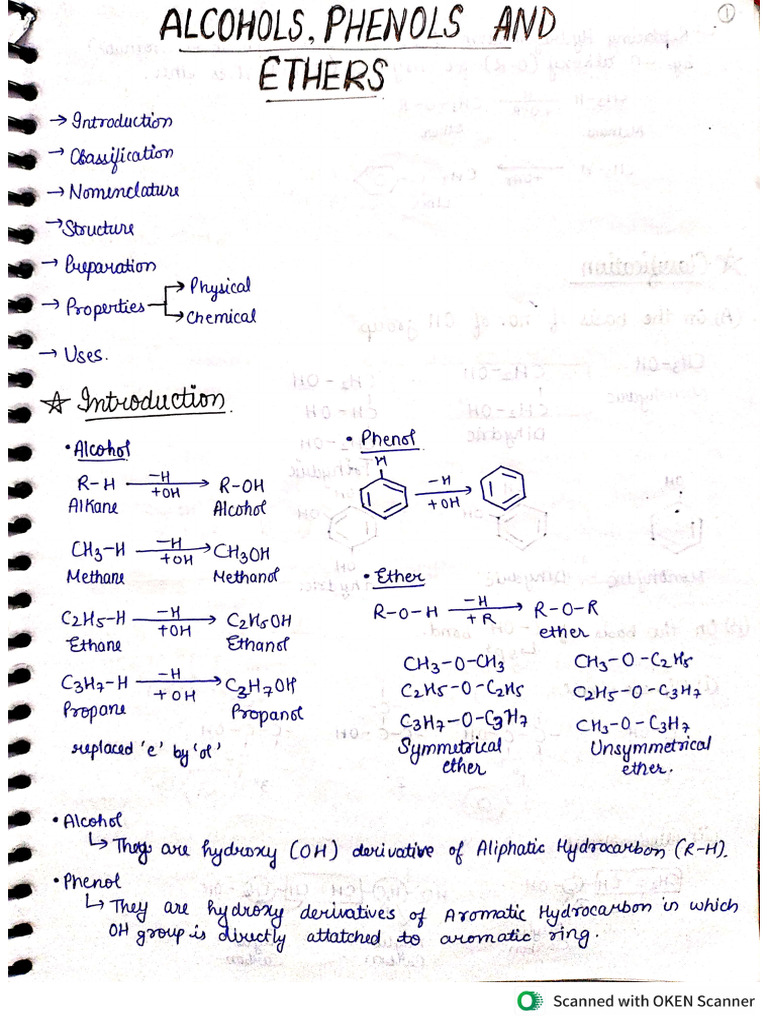 1
ALCOHOLS, PHENOLS AND
ETHERS
→ Introduction
→ Classification
→ Nomenclature
→ Structure
→ Preparation
→ Properties → Physical
→ Chemical
→ Uses.
☆ Introduction.
• Alcohol
R-H —-H/+OH→ R-OH
Alkane Alcohol
CH3-H —-H/+OH→ CH3OH
Methane Methanol
C2H5-H —-H/+OH→ C2H5OH
Ethane Ethanol
C3H7-H —-H/+OH→ C3H7OH
Propane Propanol
replaced 'e' by 'ol'
• Phenol
H
—-H/+OH→
• Ether
R-O-H —-H/+R→ R-O-R
ether
CH3-O-CH3 CH3-O-C2H5
C2H5-O-C2H5 C2H5-O-C3H7
C3H7-O-C3H7 CH3-O-C3H7
Symmetrical Unsymmetrical
ether ether.
• Alcohol
↳ They are hydroxy (OH) derivative of Aliphatic Hydrocarbon (R-H).
• Phenol
↳ They are hydroxy derivatives of Aromatic Hydrocarbon in which
OH group is directly attatched to aromatic ring.
Scanned with OKEN Scanner